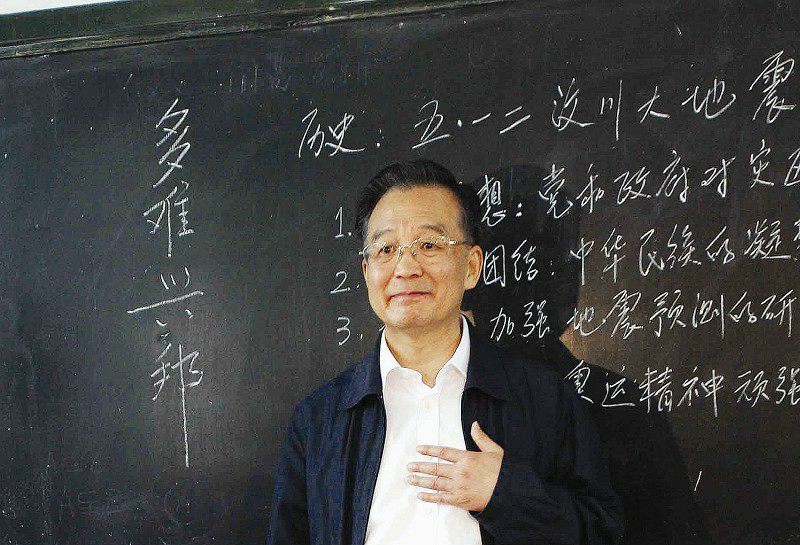 多难兴邦
历史：五·一二汶川大地震
1. 想：党和政府对灾区
2. 团结：中华民族的凝聚
3. 加强地震预测的研
奥运精神顽强